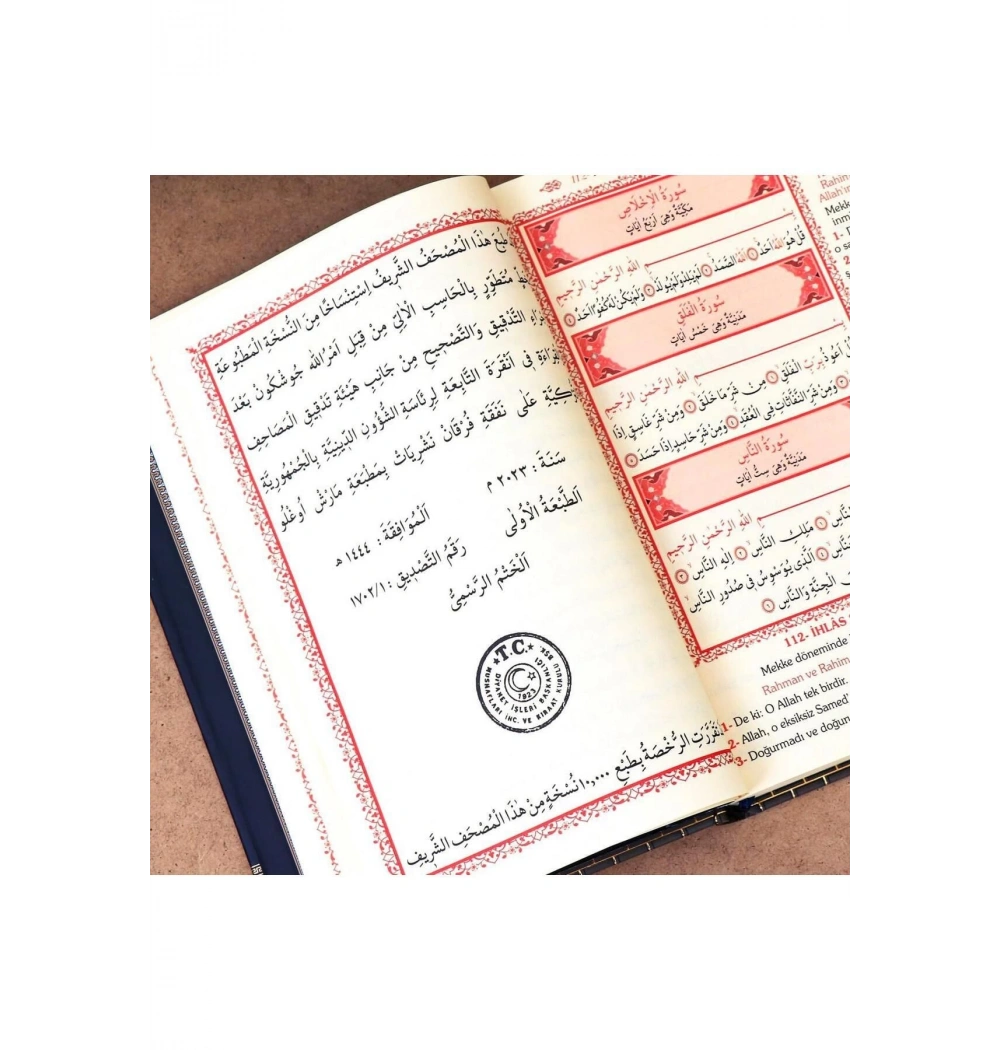 طُبِعَ هٰذَا الْمُصْحَفُ الشَّرِيفُ اِسْتِنْسَاخًا مِنَ النُّسْخَةِ الْمَطْبُوعَةِ
مُتَطَوِّرٍ بِالْحَاسِبِ الْاٰلِيِّ مِنْ قِبَلِ اَمْرُ اللّٰه جُوشْكُونْ بَعْدَ
التَّدْقِيقِ وَالتَّصْحِيحِ مِنْ جَانِبِ هَيْئَةِ تَدْقِيقِ الْمَصَاحِفِ
فِى اَنْقَرَةَ التَّابِعَةِ لِرِئَاسَةِ الشُّؤُونِ الدِّينِيَّةِ بِالْجُمْهُورِيَّةِ
عَلٰى نَفَقَةِ فُرْقَانْ نَشْرِيَاتْ بِمَطْبَعَةِ مَارْشْ اُوغْلُو
سَنَةَ : ٢٠٢٣ م
اَلْمُوَافَقَةَ : ١٤٤٤ هـ
اَلطَّبْعَةُ الْاُولٰى
رَقَمُ التَّصْدِيقِ : ١٧٠٢/١
اَلْخَتْمُ الرَّسْمِىُّ
T.C.
DİYANET İŞLERİ BAŞKANLIĞI
MUSHAFLARI İNC. VE KIRAAT KURULU BŞK.
1923
تَقَرَّرَتِ الرُّخْصَةُ بِطَبْعِ ١٠,٠٠٠ نُسْخَةٍ مِنْ هٰذَا الْمُصْحَفِ الشَّرِيفِ
سُورَةُ الْاِخْلَاصِ
مَكِّيَّةٌ وَهِىَ اَرْبَعُ اٰيَاتٍ
اللّٰهِ الرَّحْمٰنِ الرَّحِيمِ
قُلْ هُوَ اللّٰهُ اَحَدٌ ١ اَللّٰهُ الصَّمَدُ ٢ لَمْ يَلِدْ وَلَمْ يُولَدْ ٣ وَلَمْ يَكُنْ لَهُ كُفُوًا اَحَدٌ ٤
سُورَةُ الْفَلَقِ
مَدَنِيَّةٌ وَهِىَ خَمْسُ اٰيَاتٍ
اللّٰهِ الرَّحْمٰنِ الرَّحِيمِ
اَعُوذُ بِرَبِّ الْفَلَقِ ١ مِنْ شَرِّ مَا خَلَقَ ٢ وَمِنْ شَرِّ غَاسِقٍ اِذَا
وَمِنْ شَرِّ النَّفَّاثَاتِ فِى الْعُقَدِ ٤ وَمِنْ شَرِّ حَاسِدٍ اِذَا حَسَدَ ٥
سُورَةُ النَّاسِ
مَدَنِيَّةٌ وَهِىَ سِتُّ اٰيَاتٍ
اللّٰهِ الرَّحْمٰنِ الرَّحِيمِ
النَّاسِ ١ مَلِكِ النَّاسِ ٢ اِلٰهِ النَّاسِ ٣
اَلَّذِى يُوَسْوِسُ فِى صُدُورِ النَّاسِ
الْجِنَّةِ وَالنَّاسِ ٦
112- İHLÂS
Mekke döneminde
Rahman ve Rahîm
1- De ki: O Allah tek birdir.
2- Allah, o eksiksiz Samed'
3- Doğurmadı ve doğun
Rahim
Allah'ın
Mekke
inmi
1-
o sa
2